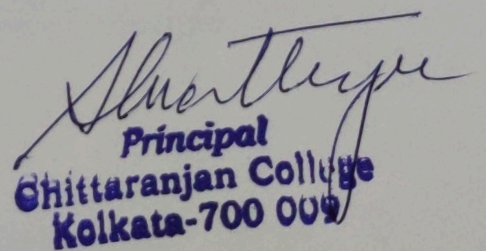 Principal
Chittaranjan College
Kolkata-700 009